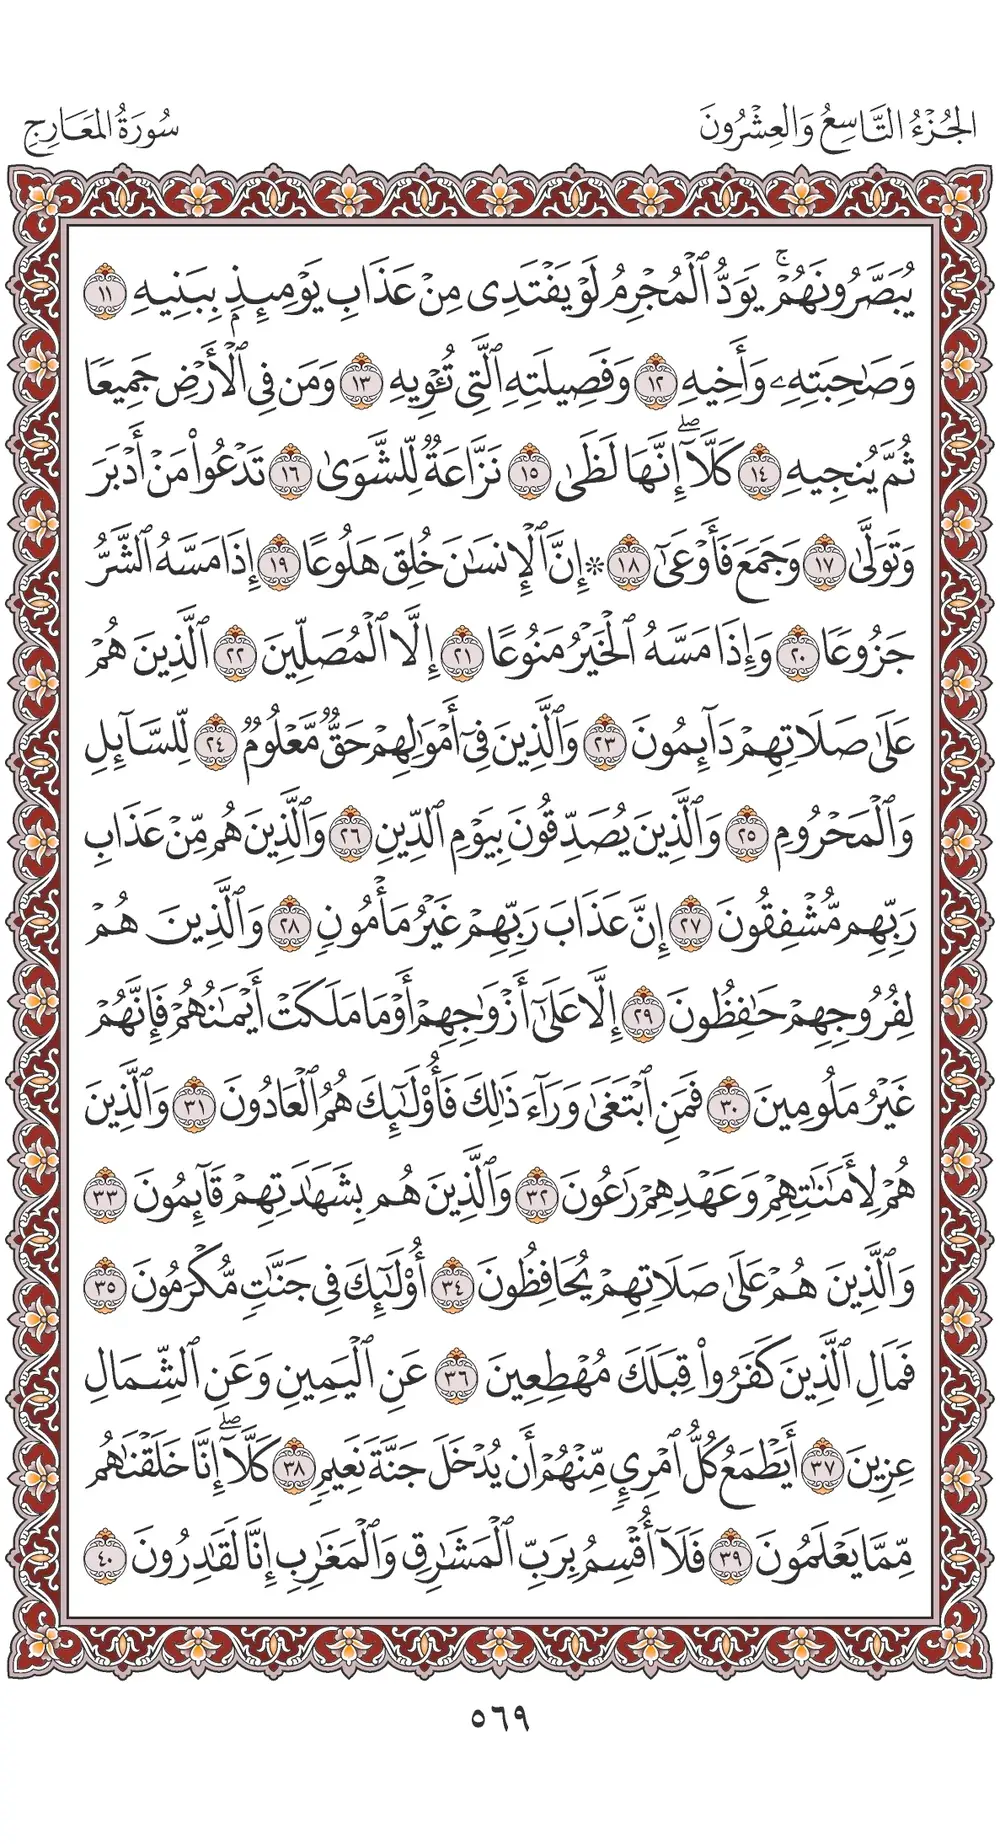 الجُزْءُ التَّاسِعُ وَالعِشْرُونَ
سُورَةُ المَعَارِجِ
يُبَصَّرُونَهُمْۚ يَوَدُّ ٱلْمُجْرِمُ لَوْ يَفْتَدِى مِنْ عَذَابِ يَوْمِئِذِۭ بِبَنِيهِ ١١
وَصَٰحِبَتِهِۦ وَأَخِيهِ ١٢ وَفَصِيلَتِهِ ٱلَّتِى تُـْٔوِيهِ ١٣ وَمَن فِى ٱلْأَرْضِ جَمِيعًا
ثُمَّ يُنجِيهِ ١٤ كَلَّآۖ إِنَّهَا لَظَىٰ ١٥ نَزَّاعَةً لِّلشَّوَىٰ ١٦ تَدْعُوا۟ مَنْ أَدْبَرَ
وَتَوَلَّىٰ ١٧ وَجَمَعَ فَأَوْعَىٰٓ ١٨ ۞ إِنَّ ٱلْإِنسَٰنَ خُلِقَ هَلُوعًا ١٩ إِذَا مَسَّهُ ٱلشَّرُّ
جَزُوعًا ٢٠ وَإِذَا مَسَّهُ ٱلْخَيْرُ مَنُوعًا ٢١ إِلَّا ٱلْمُصَلِّينَ ٢٢ ٱلَّذِينَ هُمْ
عَلَىٰ صَلَاتِهِمْ دَآئِمُونَ ٢٣ وَٱلَّذِينَ فِىٓ أَمْوَٰلِهِمْ حَقٌّ مَّعْلُومٌ ٢٤ لِّلسَّآئِلِ
وَٱلْمَحْرُومِ ٢٥ وَٱلَّذِينَ يُصَدِّقُونَ بِيَوْمِ ٱلدِّينِ ٢٦ وَٱلَّذِينَ هُم مِّنْ عَذَابِ
رَبِّهِم مُّشْفِقُونَ ٢٧ إِنَّ عَذَابَ رَبِّهِمْ غَيْرُ مَأْمُونٍ ٢٨ وَٱلَّذِينَ هُمْ
لِفُرُوجِهِمْ حَٰفِظُونَ ٢٩ إِلَّا عَلَىٰٓ أَزْوَٰجِهِمْ أَوْ مَا مَلَكَتْ أَيْمَٰنُهُمْ فَإِنَّهُمْ
غَيْرُ مَلُومِينَ ٣٠ فَمَنِ ٱبْتَغَىٰ وَرَآءَ ذَٰلِكَ فَأُو۟لَٰٓئِكَ هُمُ ٱلْعَادُونَ ٣١ وَٱلَّذِينَ
هُمْ لِأَمَٰنَٰتِهِمْ وَعَهْدِهِمْ رَٰعُونَ ٣٢ وَٱلَّذِينَ هُم بِشَهَٰدَٰتِهِمْ قَآئِمُونَ ٣٣
وَٱلَّذِينَ هُمْ عَلَىٰ صَلَاتِهِمْ يُحَافِظُونَ ٣٤ أُو۟لَٰٓئِكَ فِى جَنَّٰتٍ مُّكْرَمُونَ ٣٥
فَمَالِ ٱلَّذِينَ كَفَرُوا۟ قِبَلَكَ مُهْطِعِينَ ٣٦ عَنِ ٱلْيَمِينِ وَعَنِ ٱلشِّمَالِ
عِزِينَ ٣٧ أَيَطْمَعُ كُلُّ ٱمْرِئٍ مِّنْهُمْ أَن يُدْخَلَ جَنَّةَ نَعِيمٍ ٣٨ كَلَّآۖ إِنَّا خَلَقْنَٰهُم
مِّمَّا يَعْلَمُونَ ٣٩ فَلَآ أُقْسِمُ بِرَبِّ ٱلْمَشَٰرِقِ وَٱلْمَغَٰرِبِ إِنَّا لَقَٰدِرُونَ ٤٠
٥٦٩